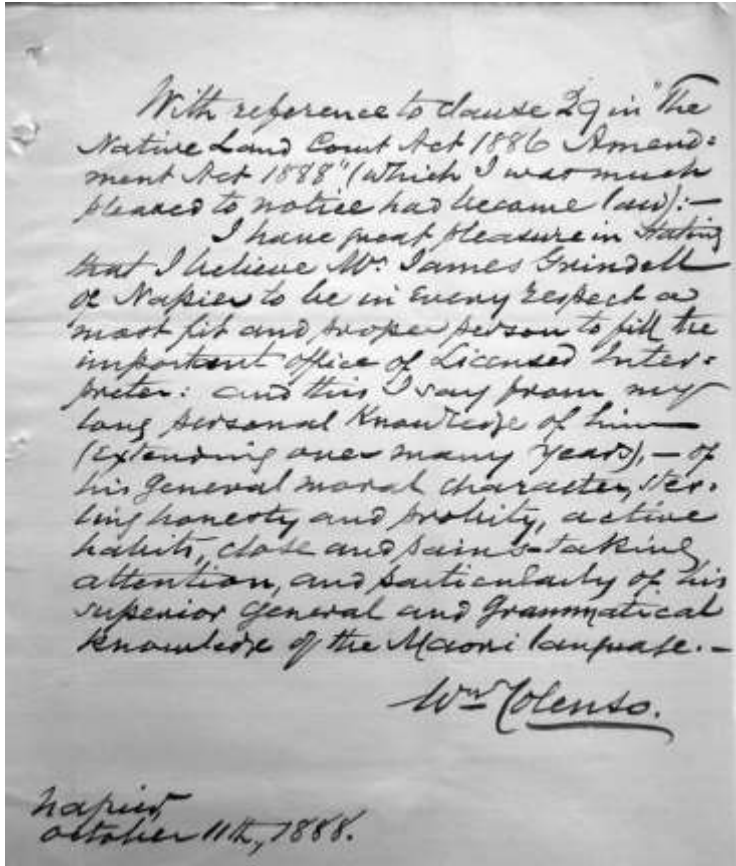 With reference to clause 29 in "The
Native Land Court Act 1886 Amend=
ment Act 1888" (which I was much
pleased to notice had become law):—
I have great pleasure in stating
that I believe Mr. James Grindell
of Napier to be in every respect a
most fit and proper person to fill the
important office of Licensed Inter=
preter: and this I say from my
long personal knowledge of him
(extending over many years),— of
his general moral character, ster=
ling honesty and probity, active
habits, close and pains-taking
attention, and particularly of his
superior general and grammatical
knowledge of the Maori language.—
Wm Colenso.
Napier,
October 11th, 1888.